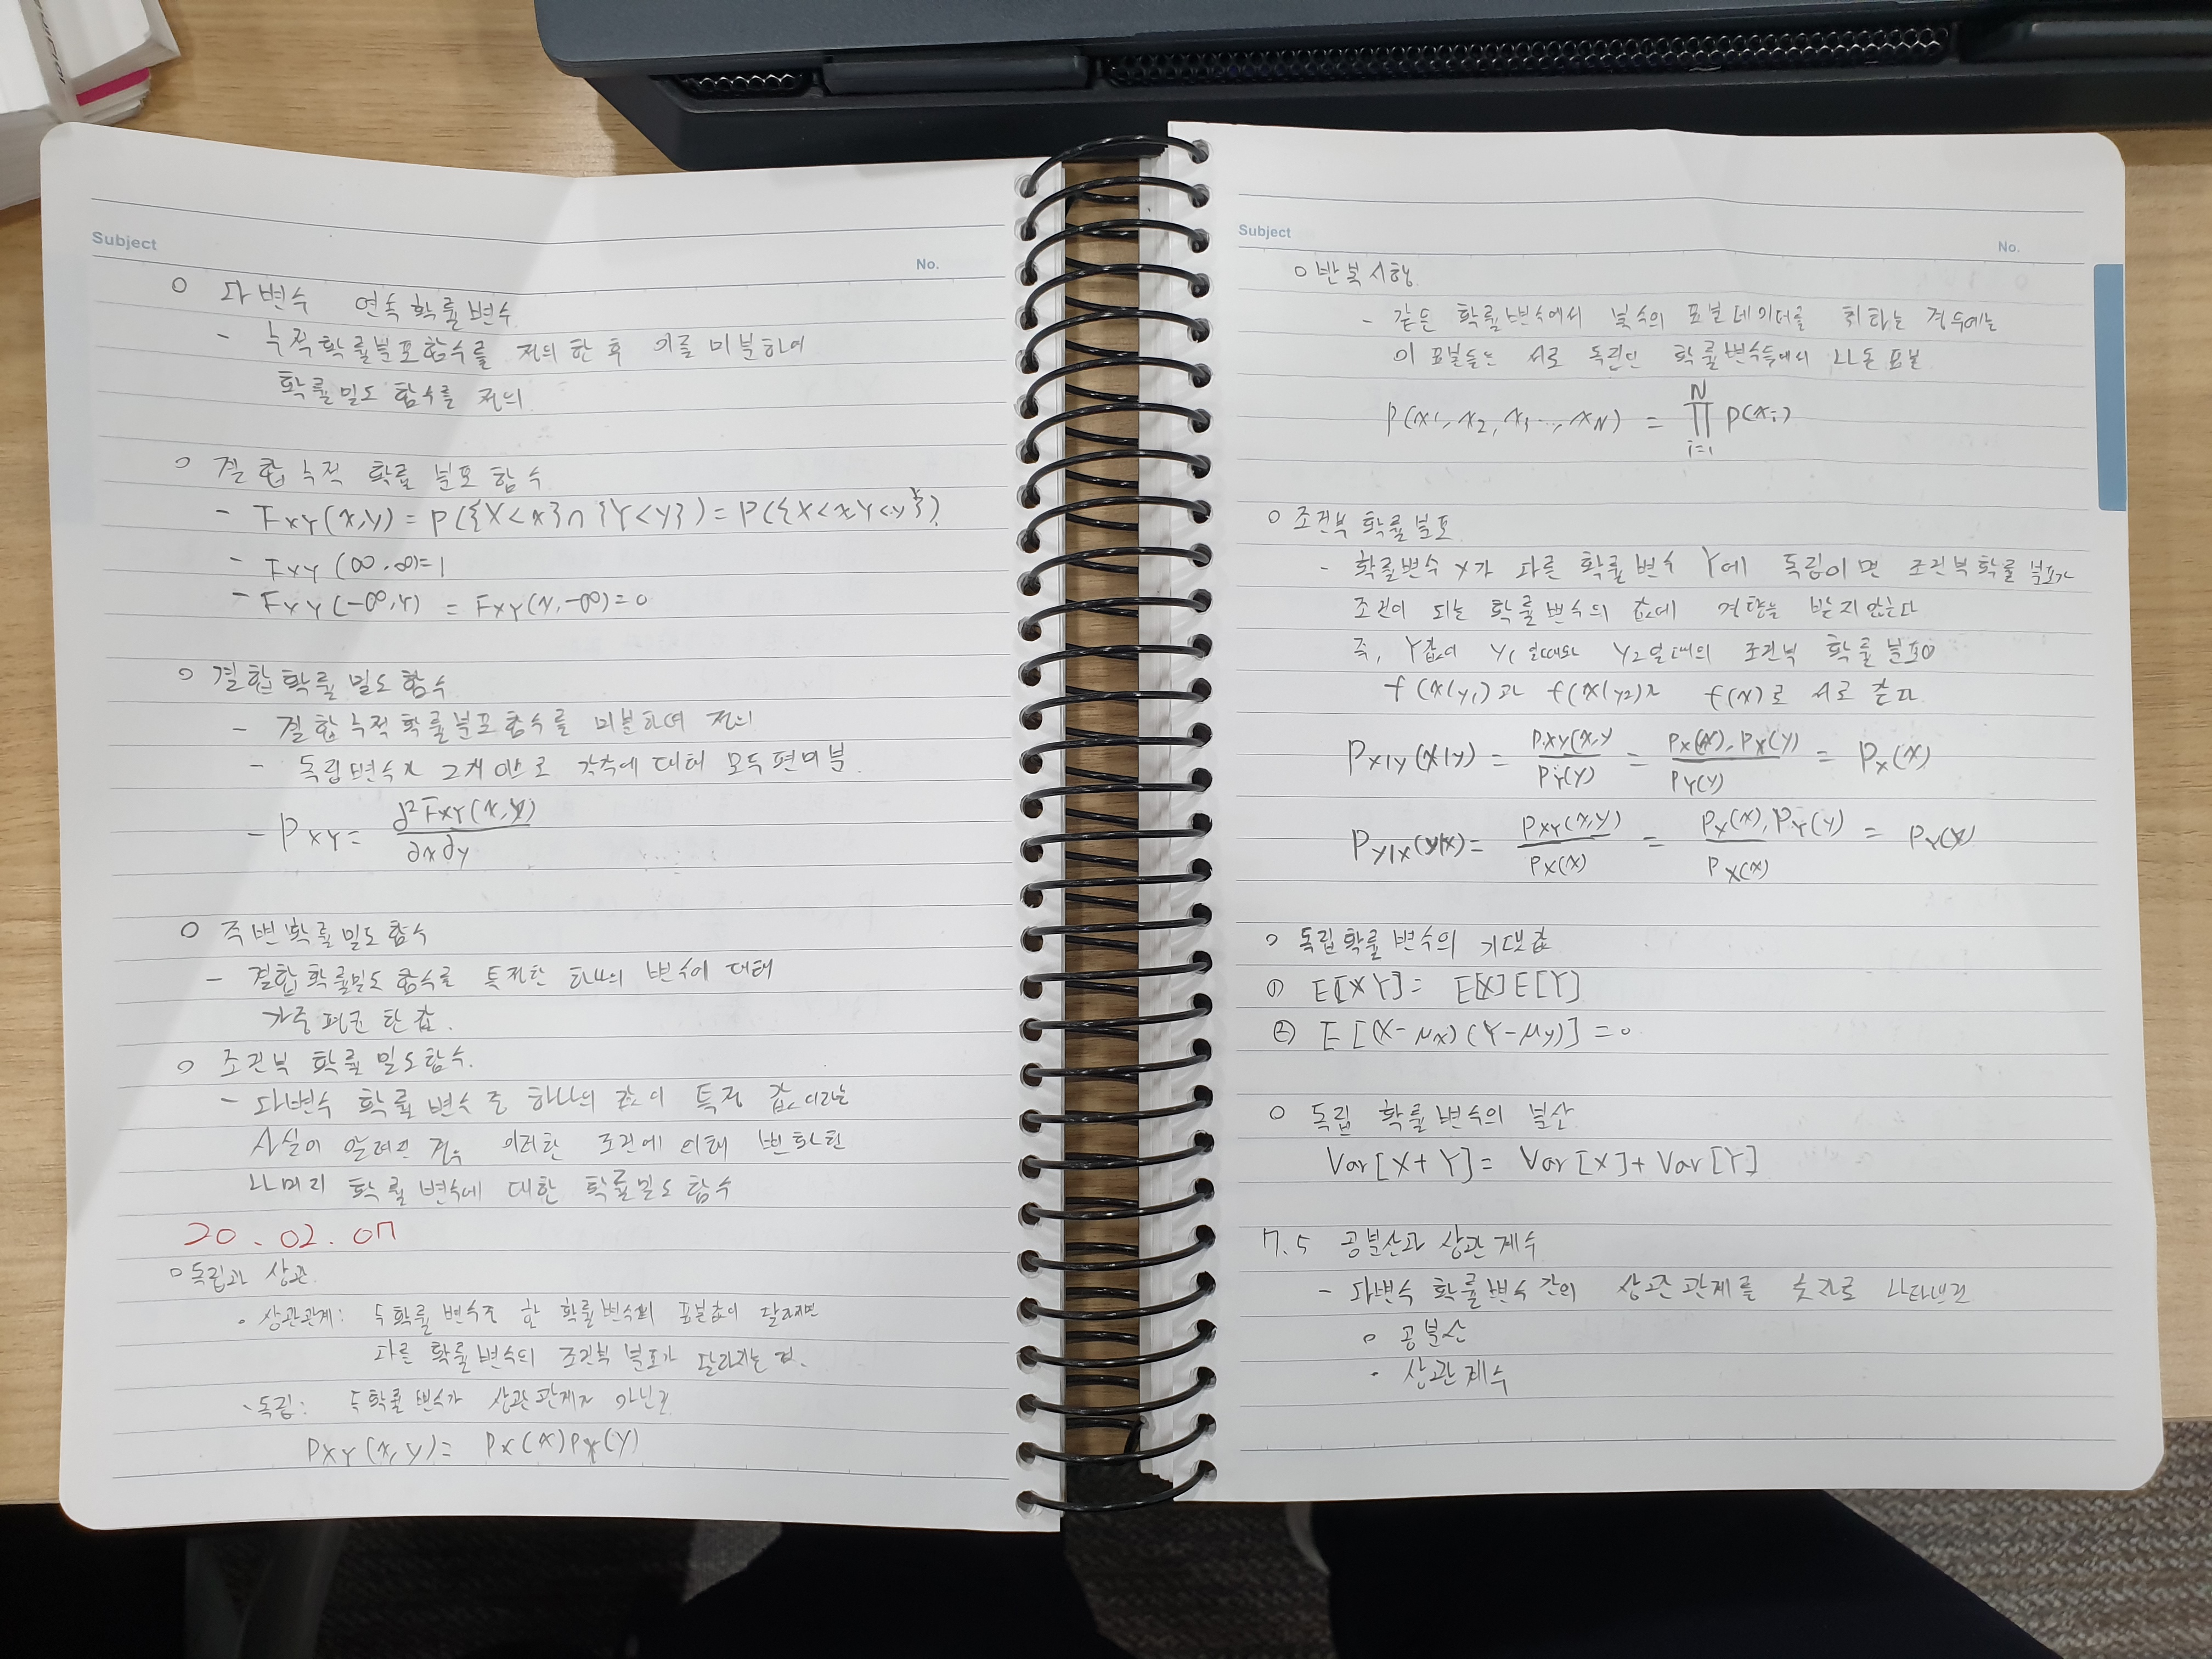 Subject
No.
○ 다변수 연속확률변수
- 누적확률분포함수를 정의한 후 이를 미분하여
확률밀도 함수를 정의
○ 결합누적 확률 분포 함수
- FXY(x,y) = P({X<x}∩{Y<y}) = P({X<x,Y<y})
- FXY(∞,∞)=1
- FXY(-∞,y) = FXY(x,-∞)=0
○ 결합확률밀도함수
- 결합누적확률분포함수를 미분하여 정의
- 독립변수가 2개이므로 각각에 대해 모두 편미분
- PXY = ∂²FXY(x,y) / ∂x∂y
○ 주변확률밀도함수
- 결합확률밀도 함수를 특정한 하나의 변수에 대해
가중평균한 값.
○ 조건부 확률밀도함수.
- 다변수 확률변수 중 하나의 값이 특정 값이라는
사실이 알려진 경우 이러한 조건에 의해 변화한
나머지 확률변수에 대한 확률밀도함수
20.02.07
○ 독립과 상관
· 상관관계: 두확률변수중 한 확률변수의 표본값이 달라지면
다른 확률변수의 조건부 분포가 달라지는 것.
· 독립: 두확률변수가 상관관계가 아닌것
PXY(x,y) = PX(x)PY(y)
Subject
No.
○ 반복시행
- 같은 확률변수에서 복수의 표본데이터를 취하는 경우에는
이 표본들은 서로 독립인 확률변수들에서 나온 표본
P(x1, x2, x3 ..., xN) = N ∏ i=1 P(xi)
○ 조건부 확률분포
- 확률변수 X가 다른 확률변수 Y에 독립이면 조건부확률분포가
조건이 되는 확률변수의 값에 영향을 받지않는다
즉, Y값이 y1일때와 y2일때의 조건부 확률분포이
f(x|y1)과 f(x|y2)가 f(x)로 서로 같다.
PX|Y(x|y) = PXY(x,y / PY(y) = PX(x), PX(y) / PY(y) = PX(x)
PY|X(y|x) = PXY(x,y) / PX(x) = PX(x), PY(y) / PX(x) = PY(y)
○ 독립확률변수의 기대값
① E[XY] = E[X]E[Y]
② E[(X-μx)(Y-μy)] = 0
○ 독립 확률변수의 분산
Var[X+Y] = Var[X]+Var[Y]
7.5 공분산과 상관계수
- 다변수 확률변수간의 상관관계를 숫자로 나타낸것
○ 공분산
· 상관계수